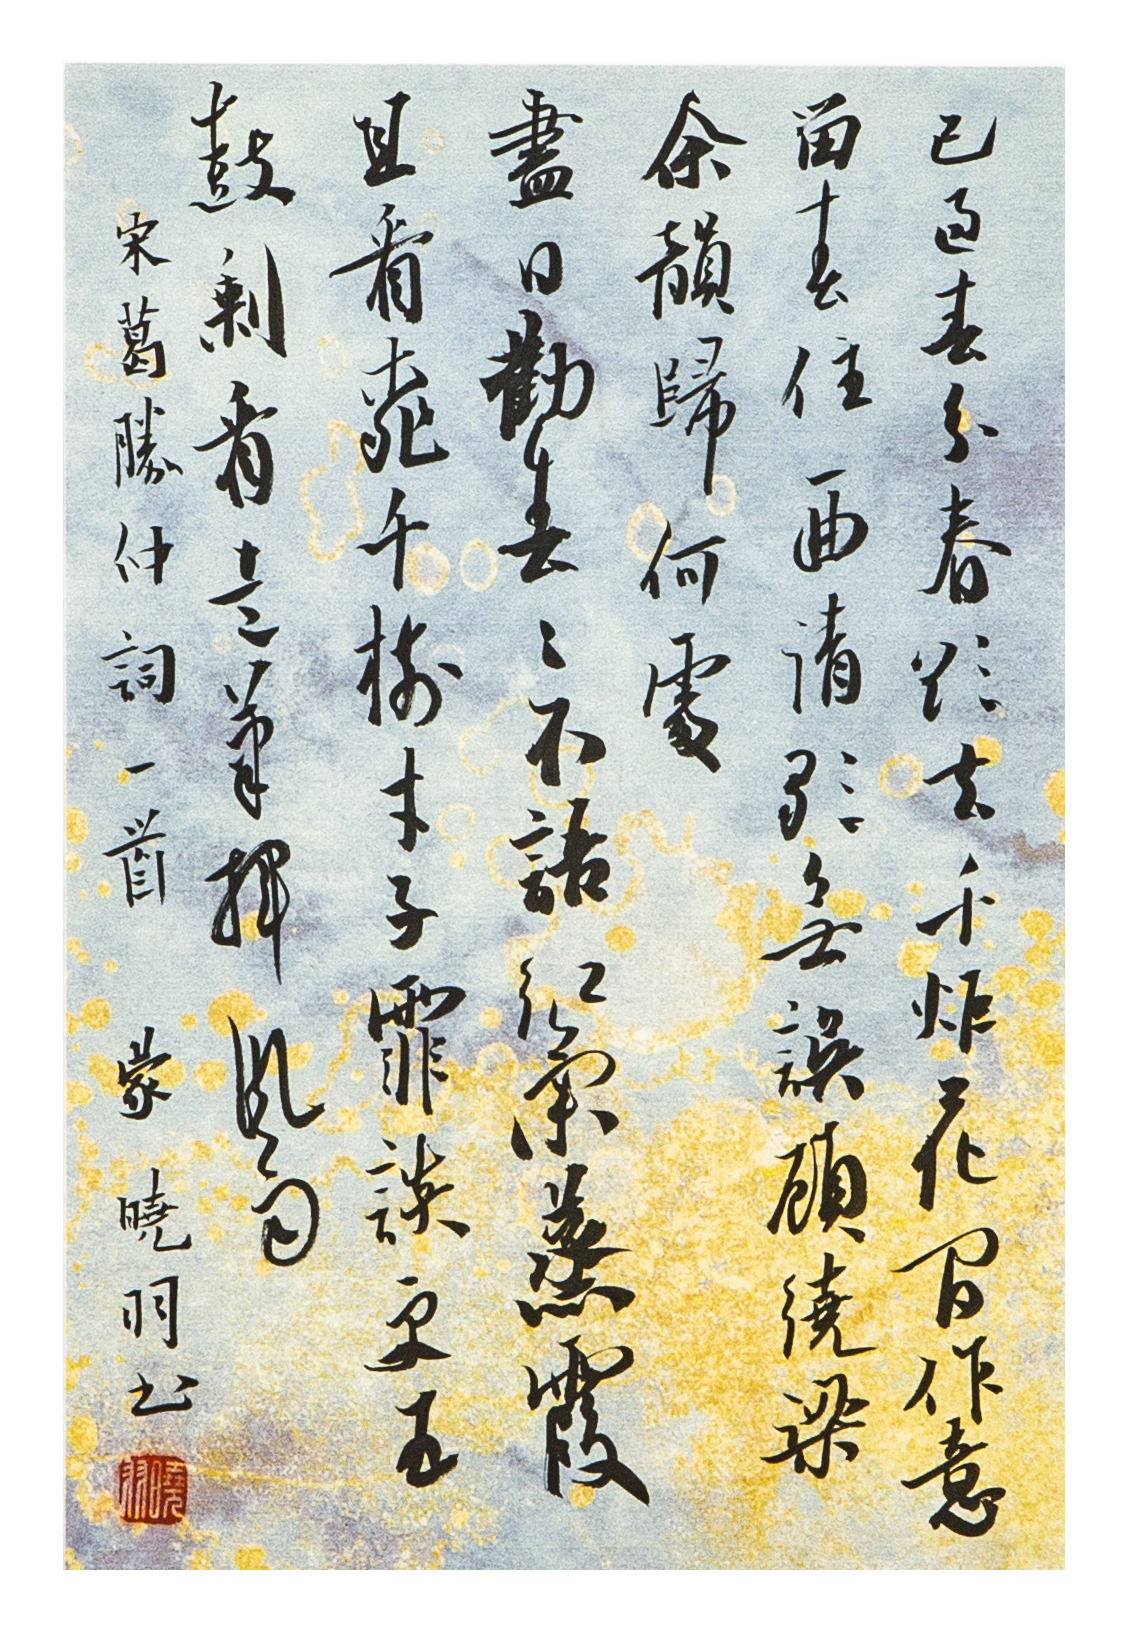 已過春分春欲去千炬花間作意
留春住一曲清歌無誤顧繞梁
余韻歸何處
盡日勸春々不語紅氣蒸霞
且看桃千樹才子霏談更五
鼓剩看走筆揮風雨
宋葛勝仲詞一首 蒙曉明书
曉明